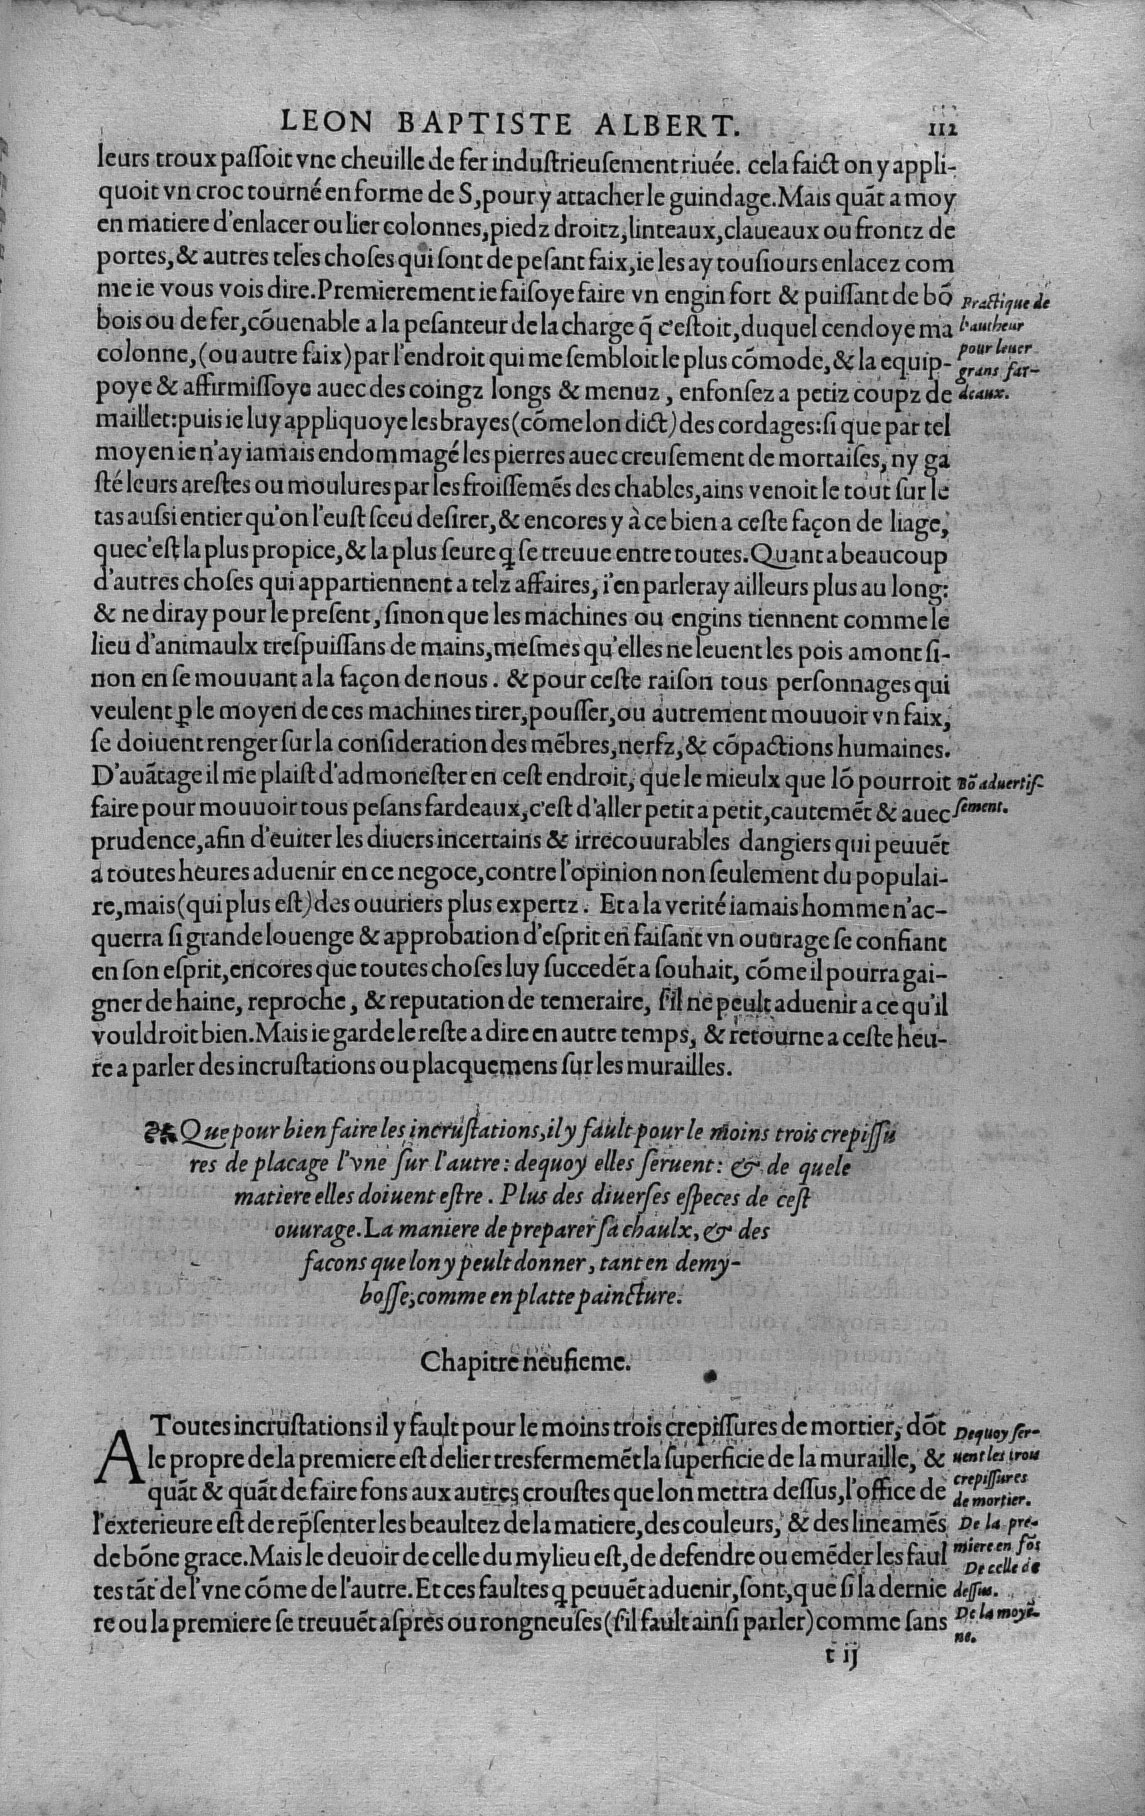 LEON BAPTISTE ALBERT. 112
leurs troux passoit vne cheuille de fer industrieusement riuée. cela faict on y appli-
quoit vn croc tourné en forme de S, pour y attacher le guindage. Mais quãt a moy
en matiere d'enlacer ou lier colonnes, piedz droitz, linteaux, claueaux ou frontz de
portes, & autres teles choses qui sont de pesant faix, ie les ay tousiours enlacez com
me ie vous vois dire. Premierement ie faisoye faire vn engin fort & puissant de bõ
bois ou de fer, cõuenable a la pesanteur de la charge q̃ c'estoit, duquel cendoye ma
colonne, (ou autre faix) par l'endroit qui me sembloit le plus cõmode, & la equip-
poye & affirmissoye auec des coingz longs & menuz, enfonsez a petiz coupz de
maillet: puis ie luy appliquoye les brayes (cõme lon dict) des cordages: si que par tel
moyen ie n'ay iamais endommagé les pierres auec creusement de mortaises, ny ga
sté leurs arestes ou moulures par les froissemẽs des chables, ains venoit le tout sur le
tas aussi entier qu'on l'eust sceu desirer, & encores y à ce bien a ceste façon de liage,
que c'est la plus propice, & la plus seure q̃ se treuue entre toutes. Quant a beaucoup
d'autres choses qui appartiennent a telz affaires, i'en parleray ailleurs plus au long:
& ne diray pour le present, sinon que les machines ou engins tiennent comme le
lieu d'animaulx trespuissans de mains, mesmes qu'elles ne leuent les pois amont si-
non en se mouuant a la façon de nous. & pour ceste raison tous personnages qui
veulent ꝑ le moyen de ces machines tirer, pousser, ou autrement mouuoir vn faix,
se doiuent renger sur la consideration des mẽbres, nerfz, & cõpactions humaines.
D'auãtage il me plaist d'admonester en cest endroit, que le mieulx que lõ pourroit
faire pour mouuoir tous pesans fardeaux, c'est d'aller petit a petit, cautemẽt & auec
prudence, afin d'euiter les diuers incertains & irrecouurables dangiers qui peuuẽt
a toutes heures aduenir en ce negoce, contre l'opinion non seulement du populai-
re, mais (qui plus est) des ouuriers plus expertz. Et a la verité iamais homme n'ac-
querra si grande louenge & approbation d'esprit en faisant vn ouurage se confiant
en son esprit, encores que toutes choses luy succedẽt a souhait, cõme il pourra gai-
gner de haine, reproche, & reputation de temeraire, s'il ne peult aduenir a ce qu'il
vouldroit bien. Mais ie garde le reste a dire en autre temps, & retourne a ceste heu-
re a parler des incrustations ou placquemens sur les murailles.
Practique de
l'autheur
pour leuer
grans far-
deaux.
Bõ aduertis-
sement.
Que pour bien faire les incrustations, il y fault pour le moins trois crepissu
res de placage l'vne sur l'autre: dequoy elles seruent: & de quele
matiere elles doiuent estre. Plus des diuerses especes de cest
ouurage. La maniere de preparer sa chaulx, & des
facons que lon y peult donner, tant en demy-
bosse, comme en platte paincture.
Chapitre neufieme.
A Toutes incrustations il y fault pour le moins trois crepissures de mortier, dõt
le propre de la premiere est de lier tresfermemẽt la superficie de la muraille, &
quãt & quãt de faire fons aux autres croustes que lon mettra dessus, l'office de
l'exterieure est de rep̃senter les beaultez de la matiere, des couleurs, & des lineamẽs
de bõne grace. Mais le deuoir de celle du mylieu est, de defendre ou emẽder les faul
tes tãt de l'vne cõme de l'autre. Et ces faultes q̃ peuuẽt aduenir, sont, que si la dernie
re ou la premiere se treuuẽt aspres ou rongneuses (s'il fault ainsi parler) comme sans
Dequoy ser-
uent les trois
crepissures
de mortier.
De la pre-
miere en fõs
De celle de
dessus.
De la moyẽ-
ne.
t ij